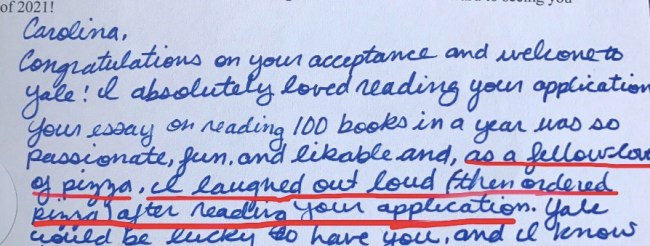 of 2021!
to seeing you
Carolina,
Congratulations on your acceptance and welcome to
Yale! I absolutely loved reading your application
Your essay on reading 100 books in a year was so
passionate, fun, and likable and, as a fellow
of pizza, I laughed out loud (then ordered
pizza) after reading your application. Yale
would be lucky to have you, and I know